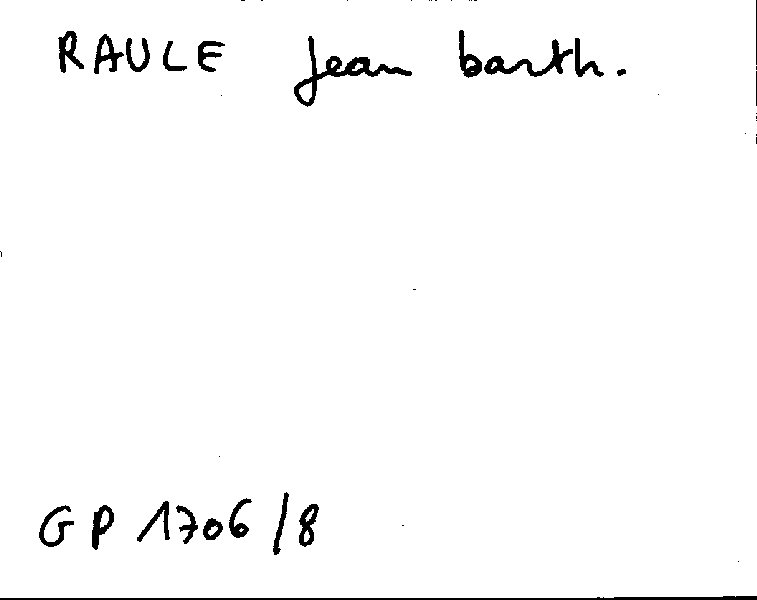 RAULE Jean barth.
GP 1706/8